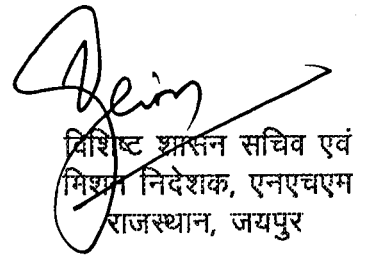 विशिष्ट शासन सचिव एवं
मिशन निदेशक, एनएचएम
राजस्थान, जयपुर